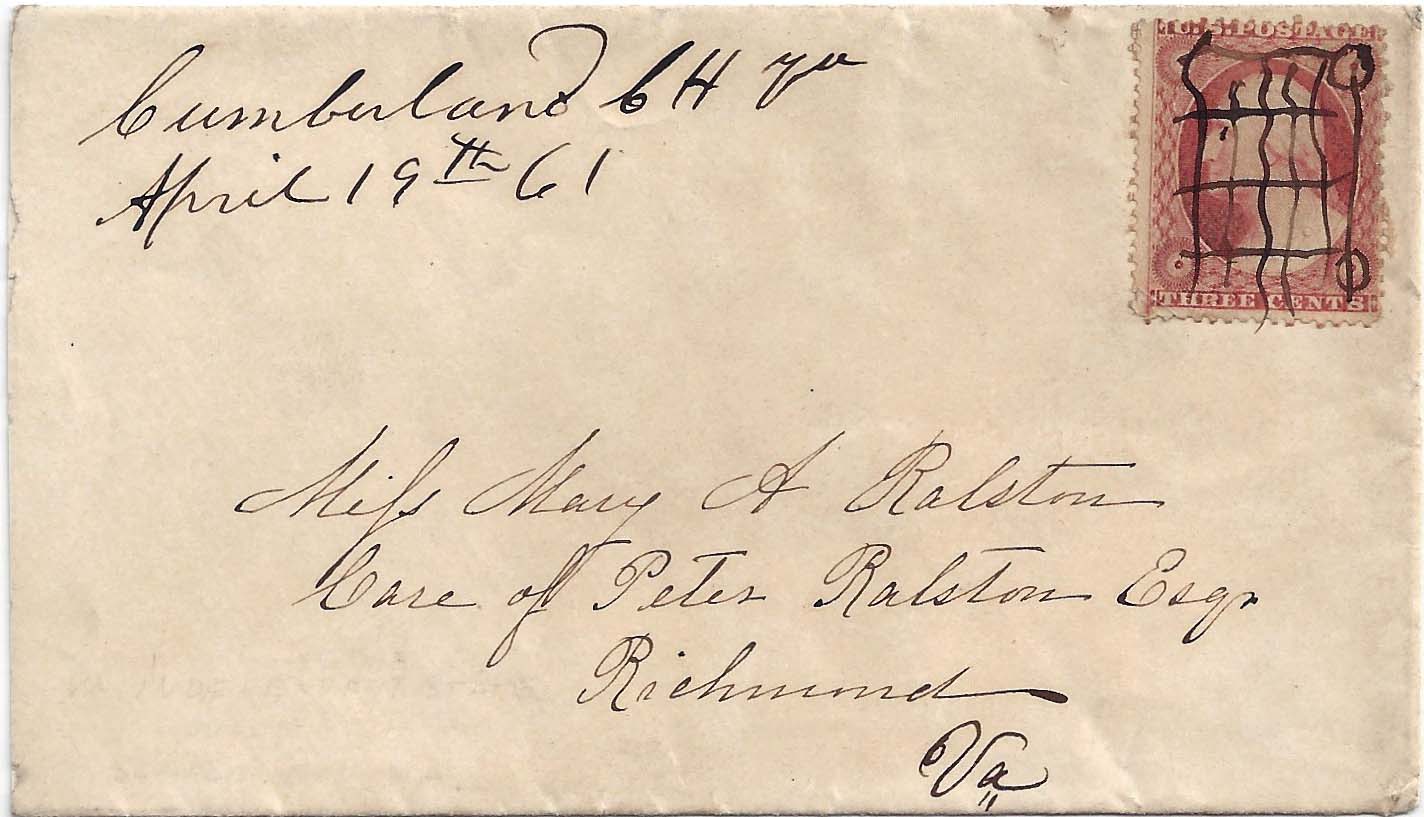 Cumberland C H Va
April 19th 61
U.S. POSTAGE
THREE CENTS
Miss Mary A Ralston
Care of Peter Ralston Esqr
Richmond
Va